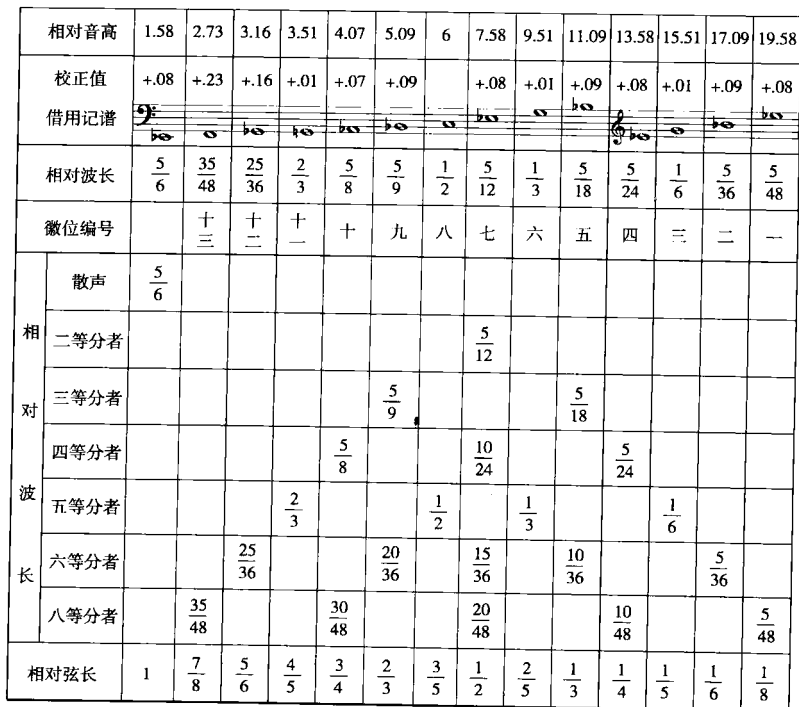 相对音高 1.58 2.73 3.16 3.51 4.07 5.09 6 7.58 9.51 11.09 13.58 15.51 17.09 19.58
校正值 +.08 +.23 +.16 +.01 +.07 +.09 +.08 +.01 +.09 +.08 +.01 +.09 +.08
借用记谱
相对波长 5/6 35/48 25/36 2/3 5/8 5/9 1/2 5/12 1/3 5/18 5/24 1/6 5/36 5/48
徽位编号 十三 十二 十一 十 九 八 七 六 五 四 三 二 一
相对波长
散声 5/6
二等分者 5/12
三等分者 5/9 5/18
四等分者 5/8 10/24 5/24
五等分者 2/3 1/2 1/3 1/6
六等分者 25/36 20/36 15/36 10/36 5/36
八等分者 35/48 30/48 20/48 10/48 5/48
相对弦长 1 7/8 5/6 4/5 3/4 2/3 3/5 1/2 2/5 1/3 1/4 1/5 1/6 1/8